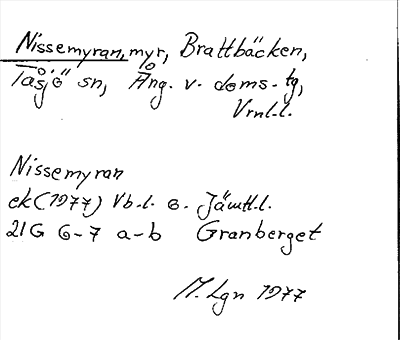 Nissemyran, myr, Brattbäcken,
Tåsjö sn, Ång. v. doms. tg,
Vrnl.l.
Nissemyran
ek (1977) Vb.l. o. Jämtl.l.
21G 6-7 a-b Granberget
M. Lgn 1977